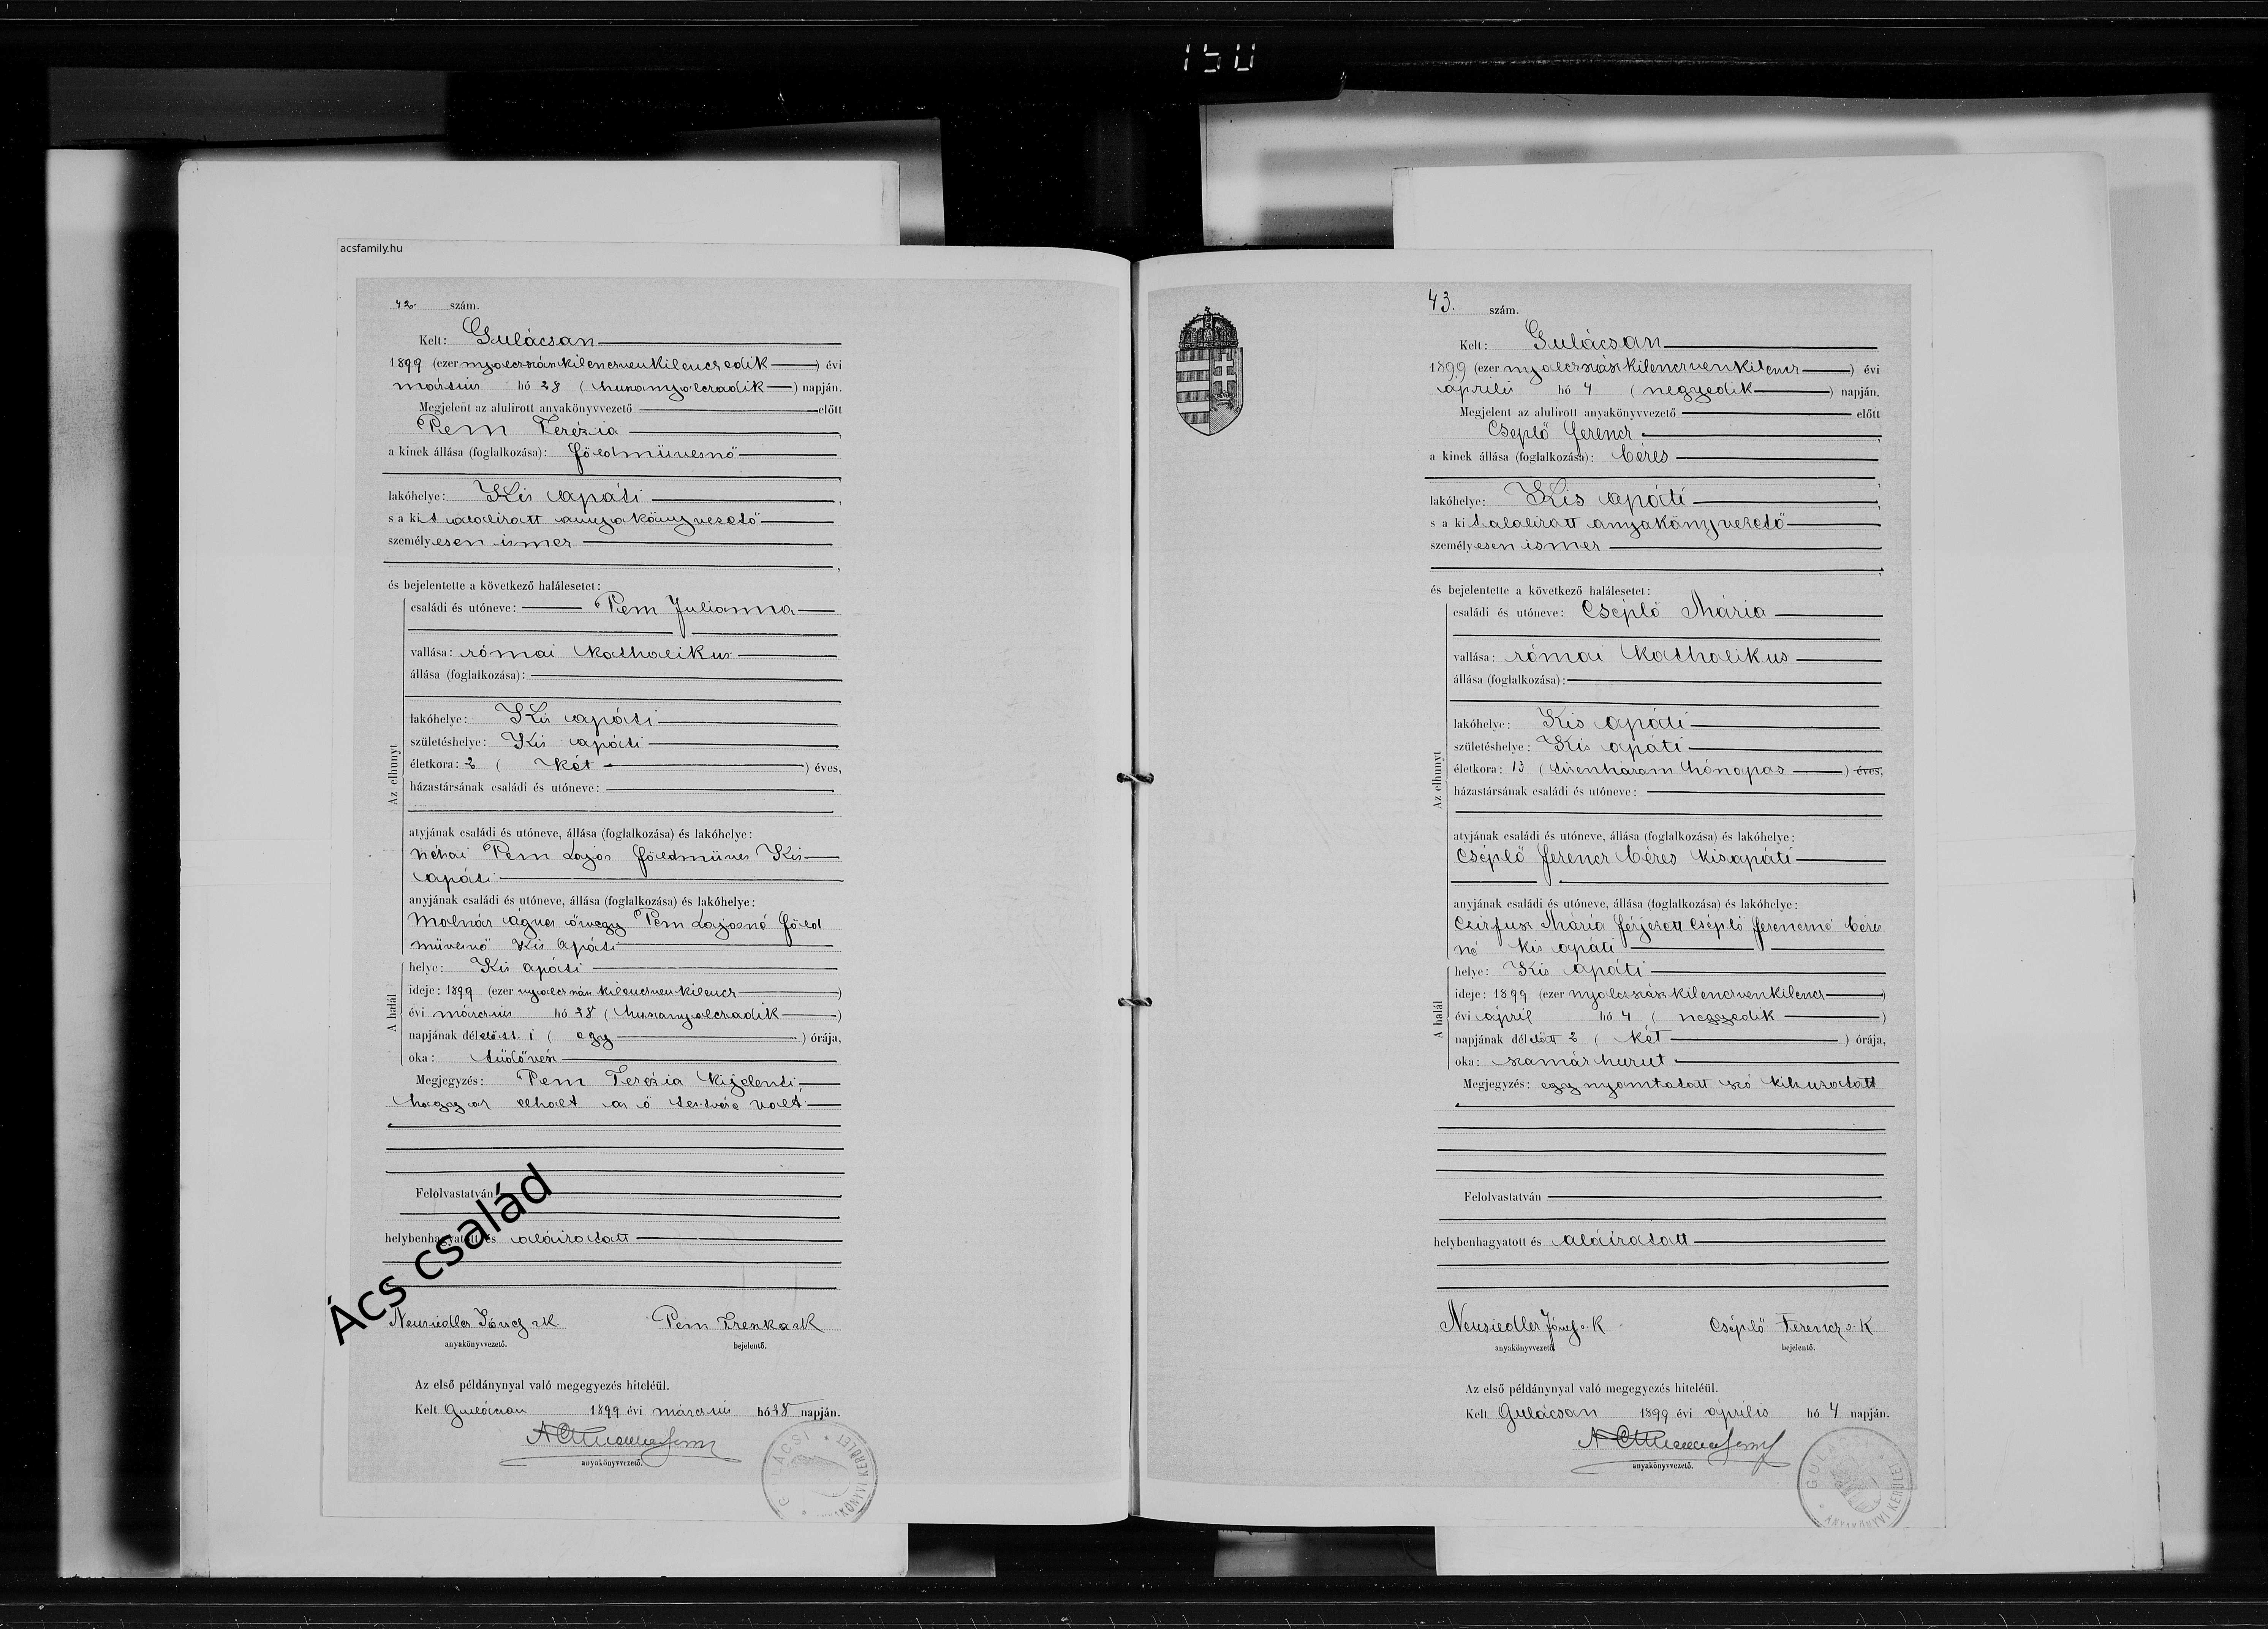 150
acsfamily.hu
42. szám.
Kelt: Gulácsan
1899 (ezer nyolcszázkilencvenkilenczedik) évi
márczius hó 28 (huszonnyolczadik) napján.
Megjelent az alulirott anyakönyvvezető előtt
Pem Terézia,
a kinek állása (foglalkozása): földművesnő
lakóhelye: Kis apáti,
s a kit alalirott anyakönyvezető
személyesen ismer
,
és bejelentette a következő halálesetet:
Az elhunyt
családi és utóneve: Pem Julianna
vallása: római katholikus
állása (foglalkozása):
lakóhelye: Kis apáti
születéshelye: Kis apáti
életkora: 2 (két) éves,
házastársának családi és utóneve:
atyjának családi és utóneve, állása (foglalkozása) és lakóhelye:
néhai Pem Lajos földműves Kis
apáti
anyjának családi és utóneve, állása (foglalkozása) és lakóhelye:
Molnár ágnes özvegy Pem Lajosné föld
művesnő Kis apáti
A halál
helye: Kis apáti
ideje: 1899 (ezer nyolcszázkilenczvenkilencz)
évi márczius hó 28 (huszonnyolczadik)
napjának délelőtt 1 (egy) órája,
oka: tüdővész
Megjegyzés: Pem Terézia kijelenti,
hogy az elhalt az ő testvére volt.
Felolvastatván
helybenhagyatott és aláiratott
Ács család
Neusiedler József s.k
anyakönyvvezető.
Pem Trenka s.k
bejelentő.
Az első példánynyal való megegyezés hiteléül.
Kelt Gulácsan 1899 évi márczius hó 28 napján.
anyakönyvvezető.
GULÁCSI ANYAKÖNYVI KERÜLET
43. szám.
Kelt: Gulácsan
1899 (ezer nyolczszázkilenczvenkilencz) évi
április hó 4 (negyedik) napján.
Megjelent az alulirott anyakönyvvezető előtt
Cséplő Ferencz,
a kinek állása (foglalkozása): béres
lakóhelye: Kis apáti,
s a kit alalirott anyakönyvezető
személyesen ismer
,
és bejelentette a következő halálesetet:
Az elhunyt
családi és utóneve: Cséplő Mária
vallása: római katholikus
állása (foglalkozása):
lakóhelye: Kis apáti
születéshelye: Kis apáti
életkora: 13 (tizenhárom hónapos) éves,
házastársának családi és utóneve:
atyjának családi és utóneve, állása (foglalkozása) és lakóhelye:
Cséplő Ferencz béres Kisapáti
anyjának családi és utóneve, állása (foglalkozása) és lakóhelye:
Czirfusz Mária férjezett Cséplő Ferenczné béres
né Kis apáti
A halál
helye: Kis apáti
ideje: 1899 (ezer nyolczszázkilenczvenkilencz)
évi ápril hó 4 (negyedik)
napjának délelőtt 2 (két) órája,
oka: szamárhurut
Megjegyzés: egy nyomtatott szó kihuzatott
Felolvastatván
helybenhagyatott és aláiratott
Neusiedler József s.k
anyakönyvvezető.
Cséplő Ferencz s.k
bejelentő.
Az első példánynyal való megegyezés hiteléül.
Kelt Gulácsan 1899 évi április hó 4 napján.
anyakönyvvezető.
GULÁCSI ANYAKÖNYVI KERÜLET